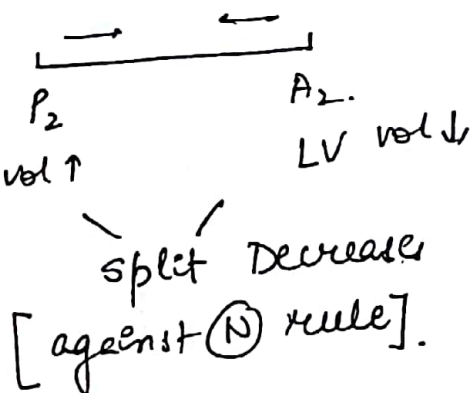 P2 A2.
vol ↑ LV vol ↓
split Decreases
[against N rule].